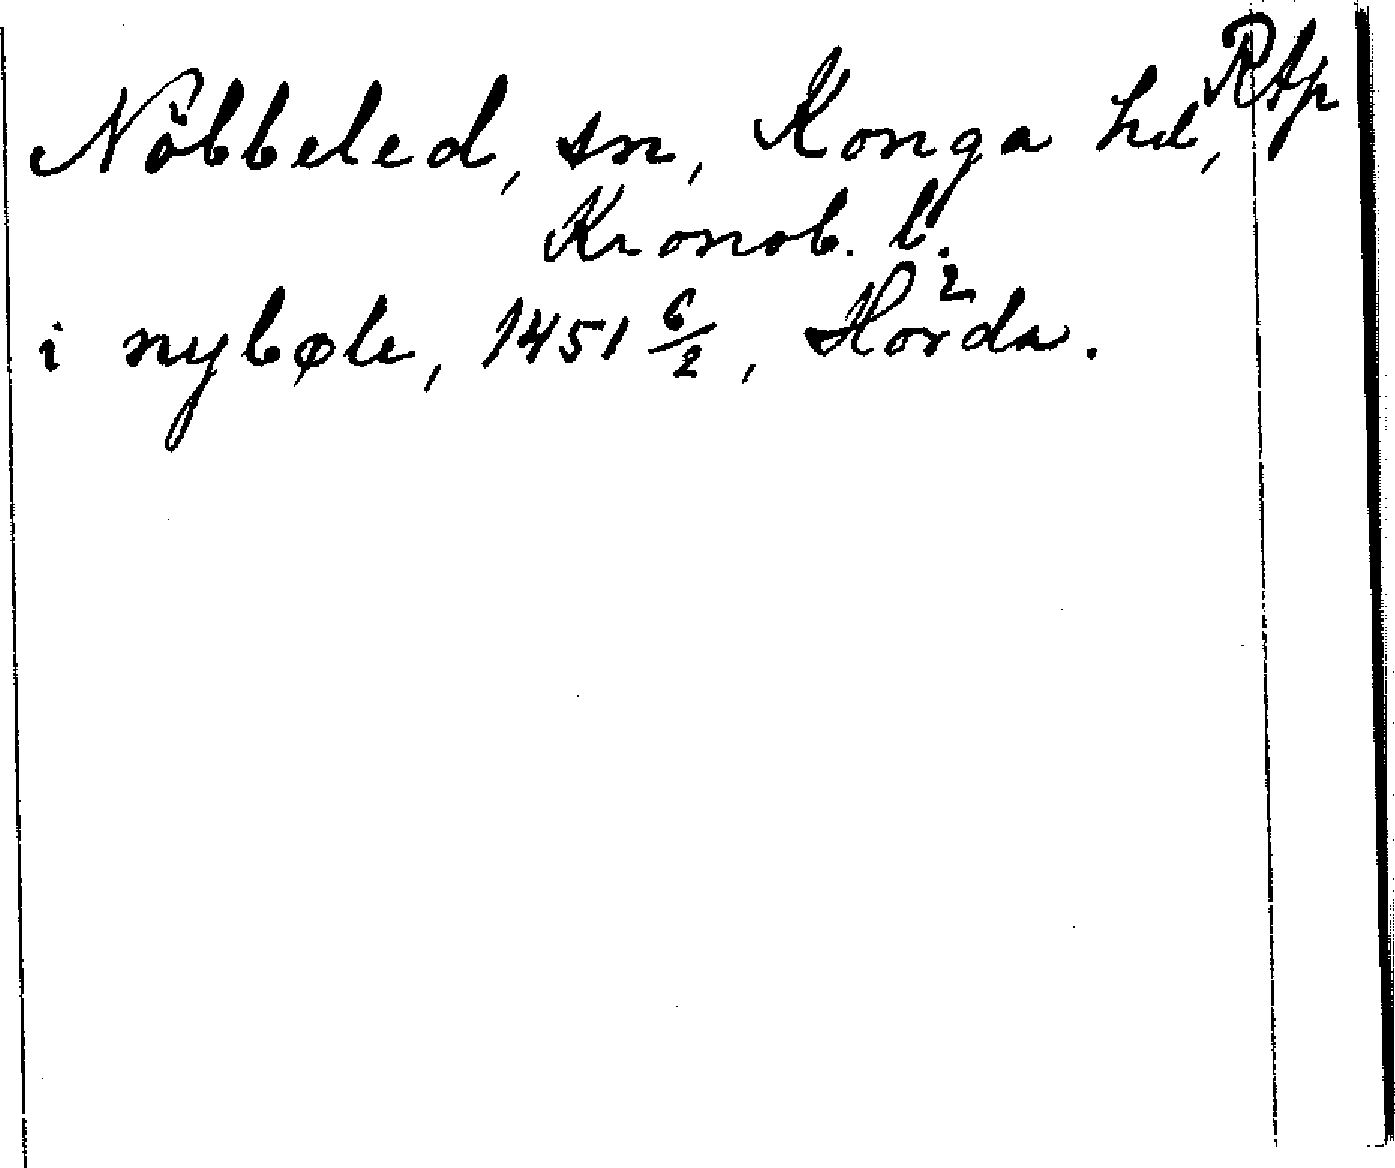 Nöbbeled, sn, Konga hd, RAp
Kronob. l.
i nybøle, 1451 6/2, Hörda.